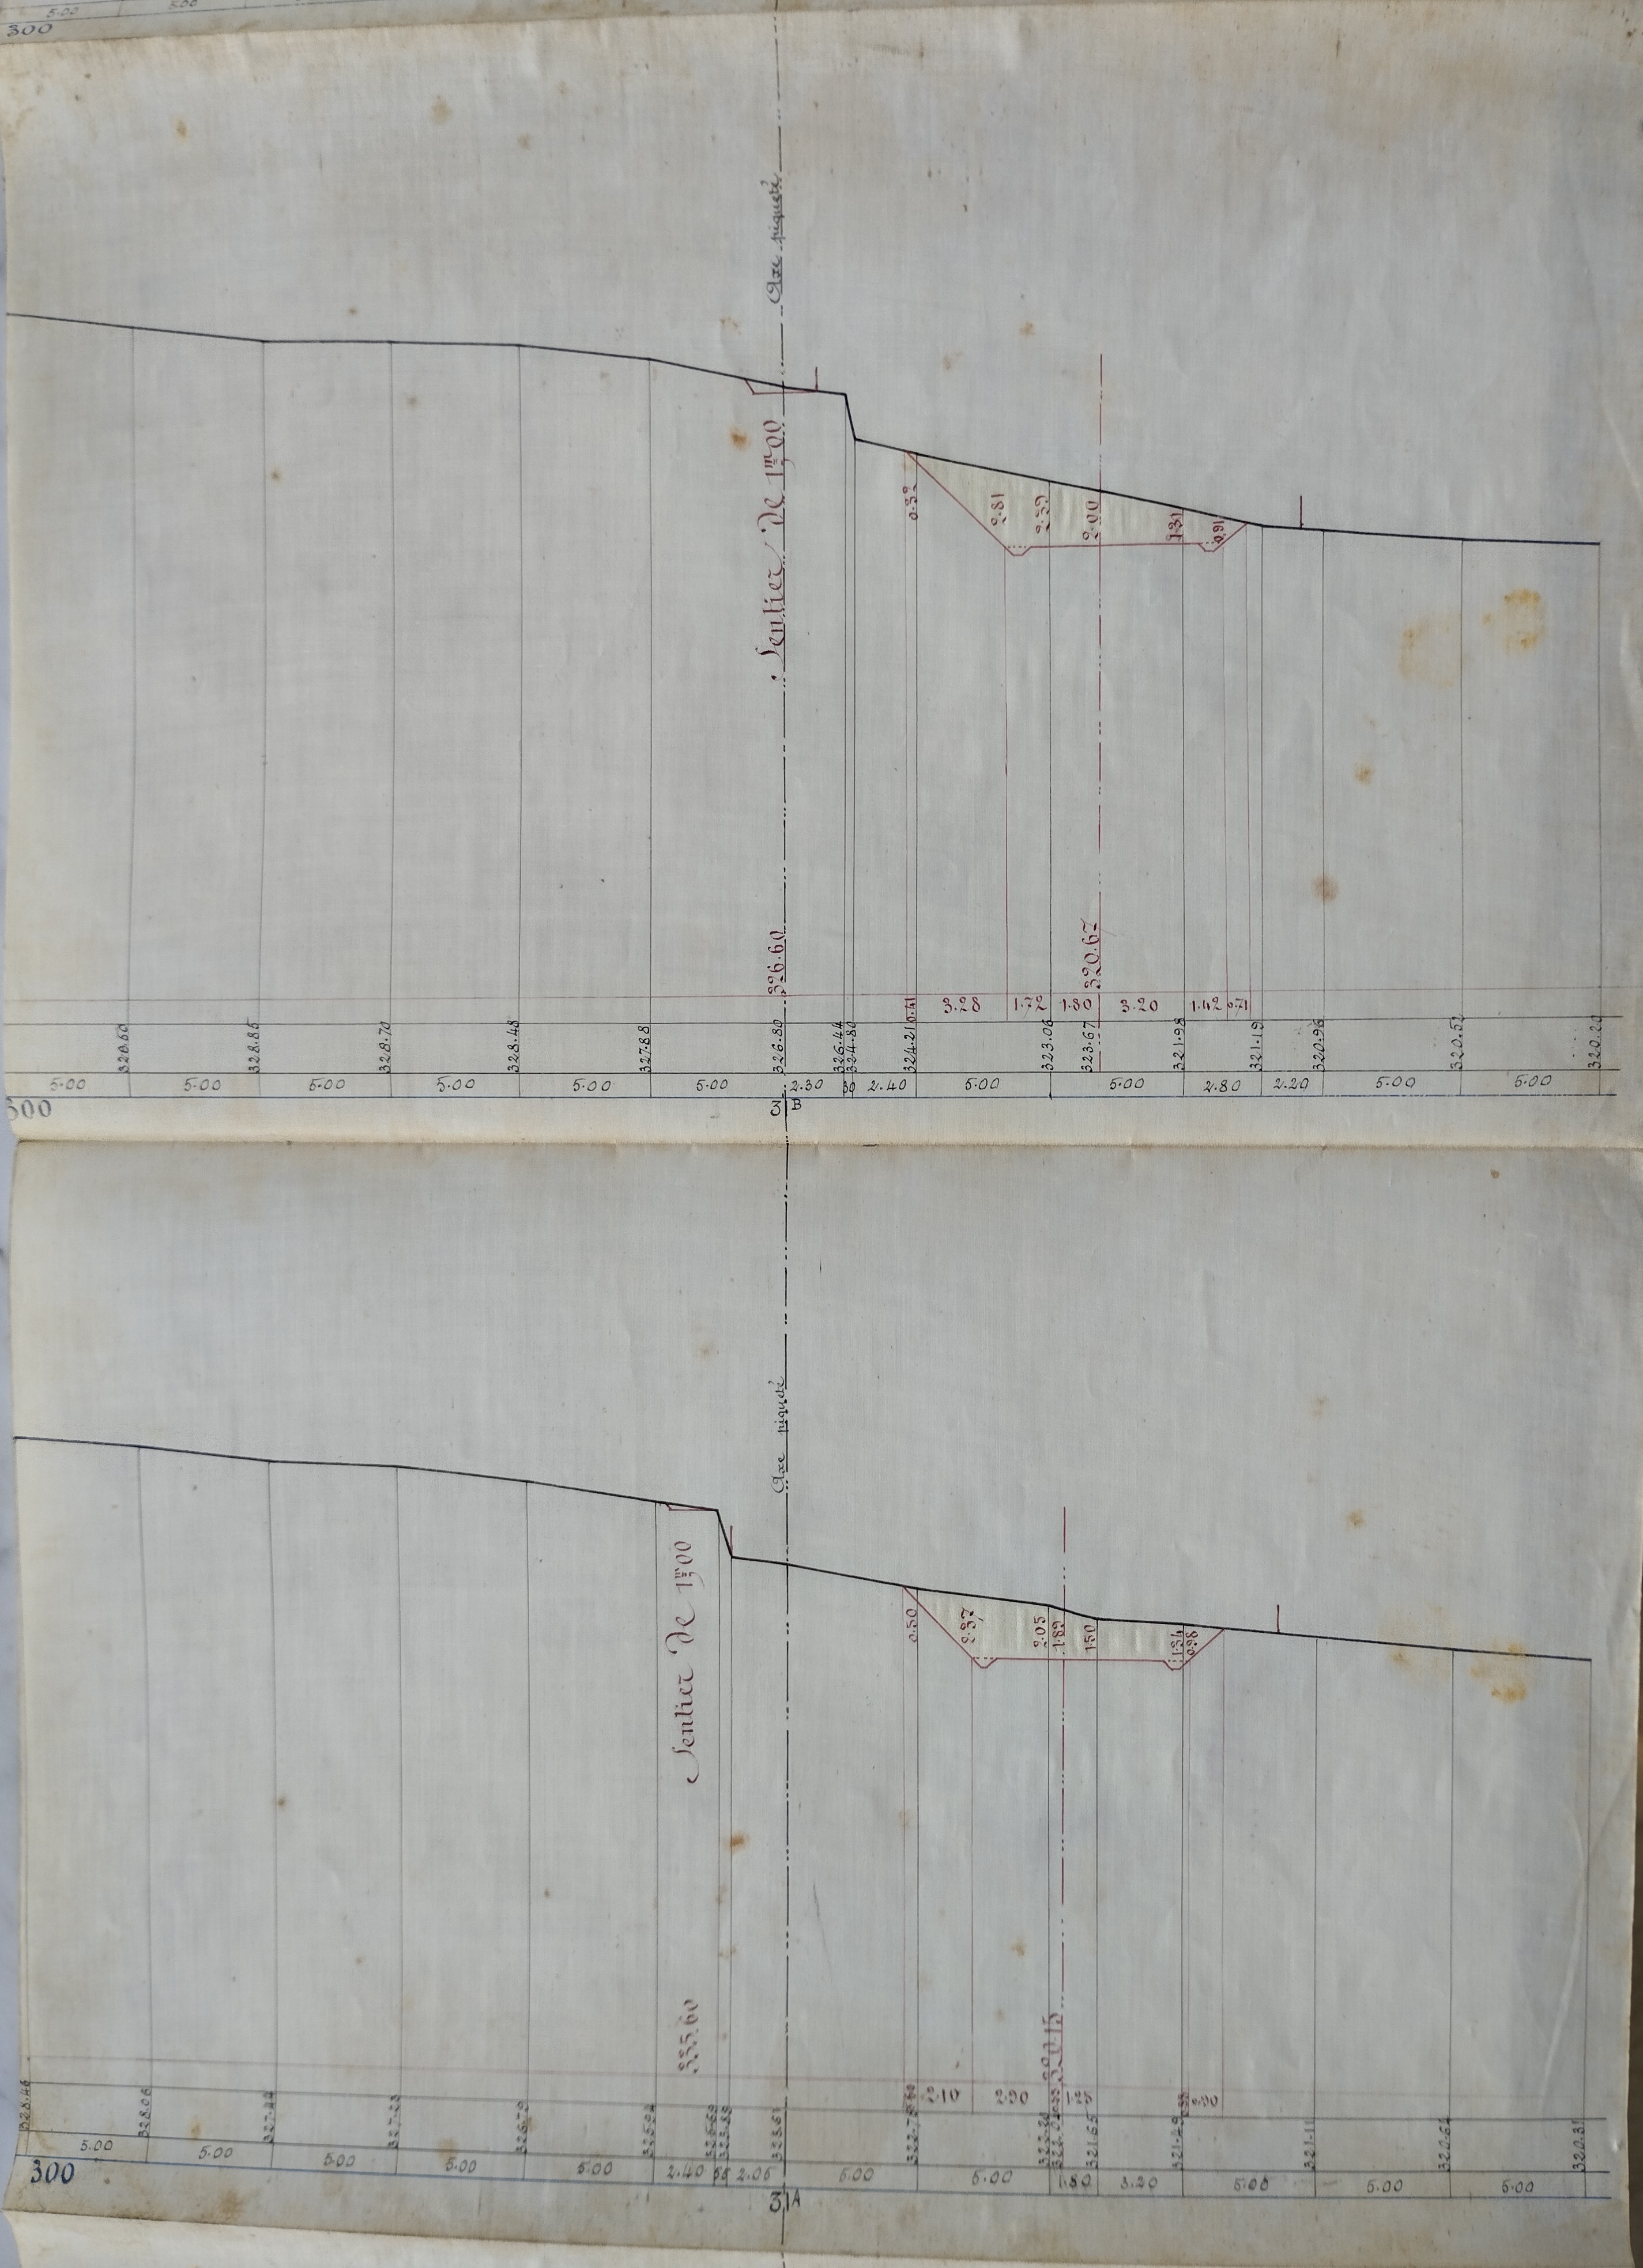 5.00 5.00
300
Axe piqueté
Sentier de 1m00
0.32 2.81 2.39 2.00 1.31 0.91
326.60 320.67
0.41 3.28 1.72 1.80 3.20 1.42 0.71
328.85 328.70 328.48 327.88 326.80 326.44 324.80 324.21 323.06 323.67 321.98 321.19 320.96 320.52
5.00 5.00 5.00 5.00 5.00 5.00 2.30 30 2.40 5.00 5.00 2.80 2.20 5.00 5.00
300
31 B
Axe piqueté
Sentier de 1m00
0.50 2.37 2.05 1.89 1.50 1.34 0.98
320.15
2.10 2.90
328.46 328.06 321.65 321.49 321.11 320.62 320.31
5.00 5.00 5.00 5.00 5.00 2.40 2.06 5.00 5.00 1.80 3.20 5.00 5.00 5.00
300
31 A